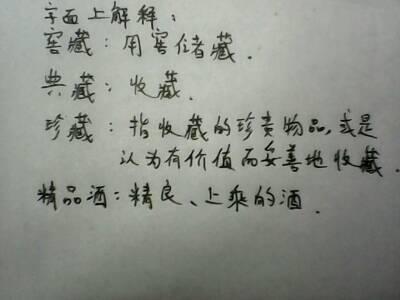 字面上解释：
窖藏：用窖储藏．
典藏：收藏．
珍藏：指收藏的珍贵物品，或是
认为有价值而妥善地收藏．
精品酒：精良、上乘的酒．